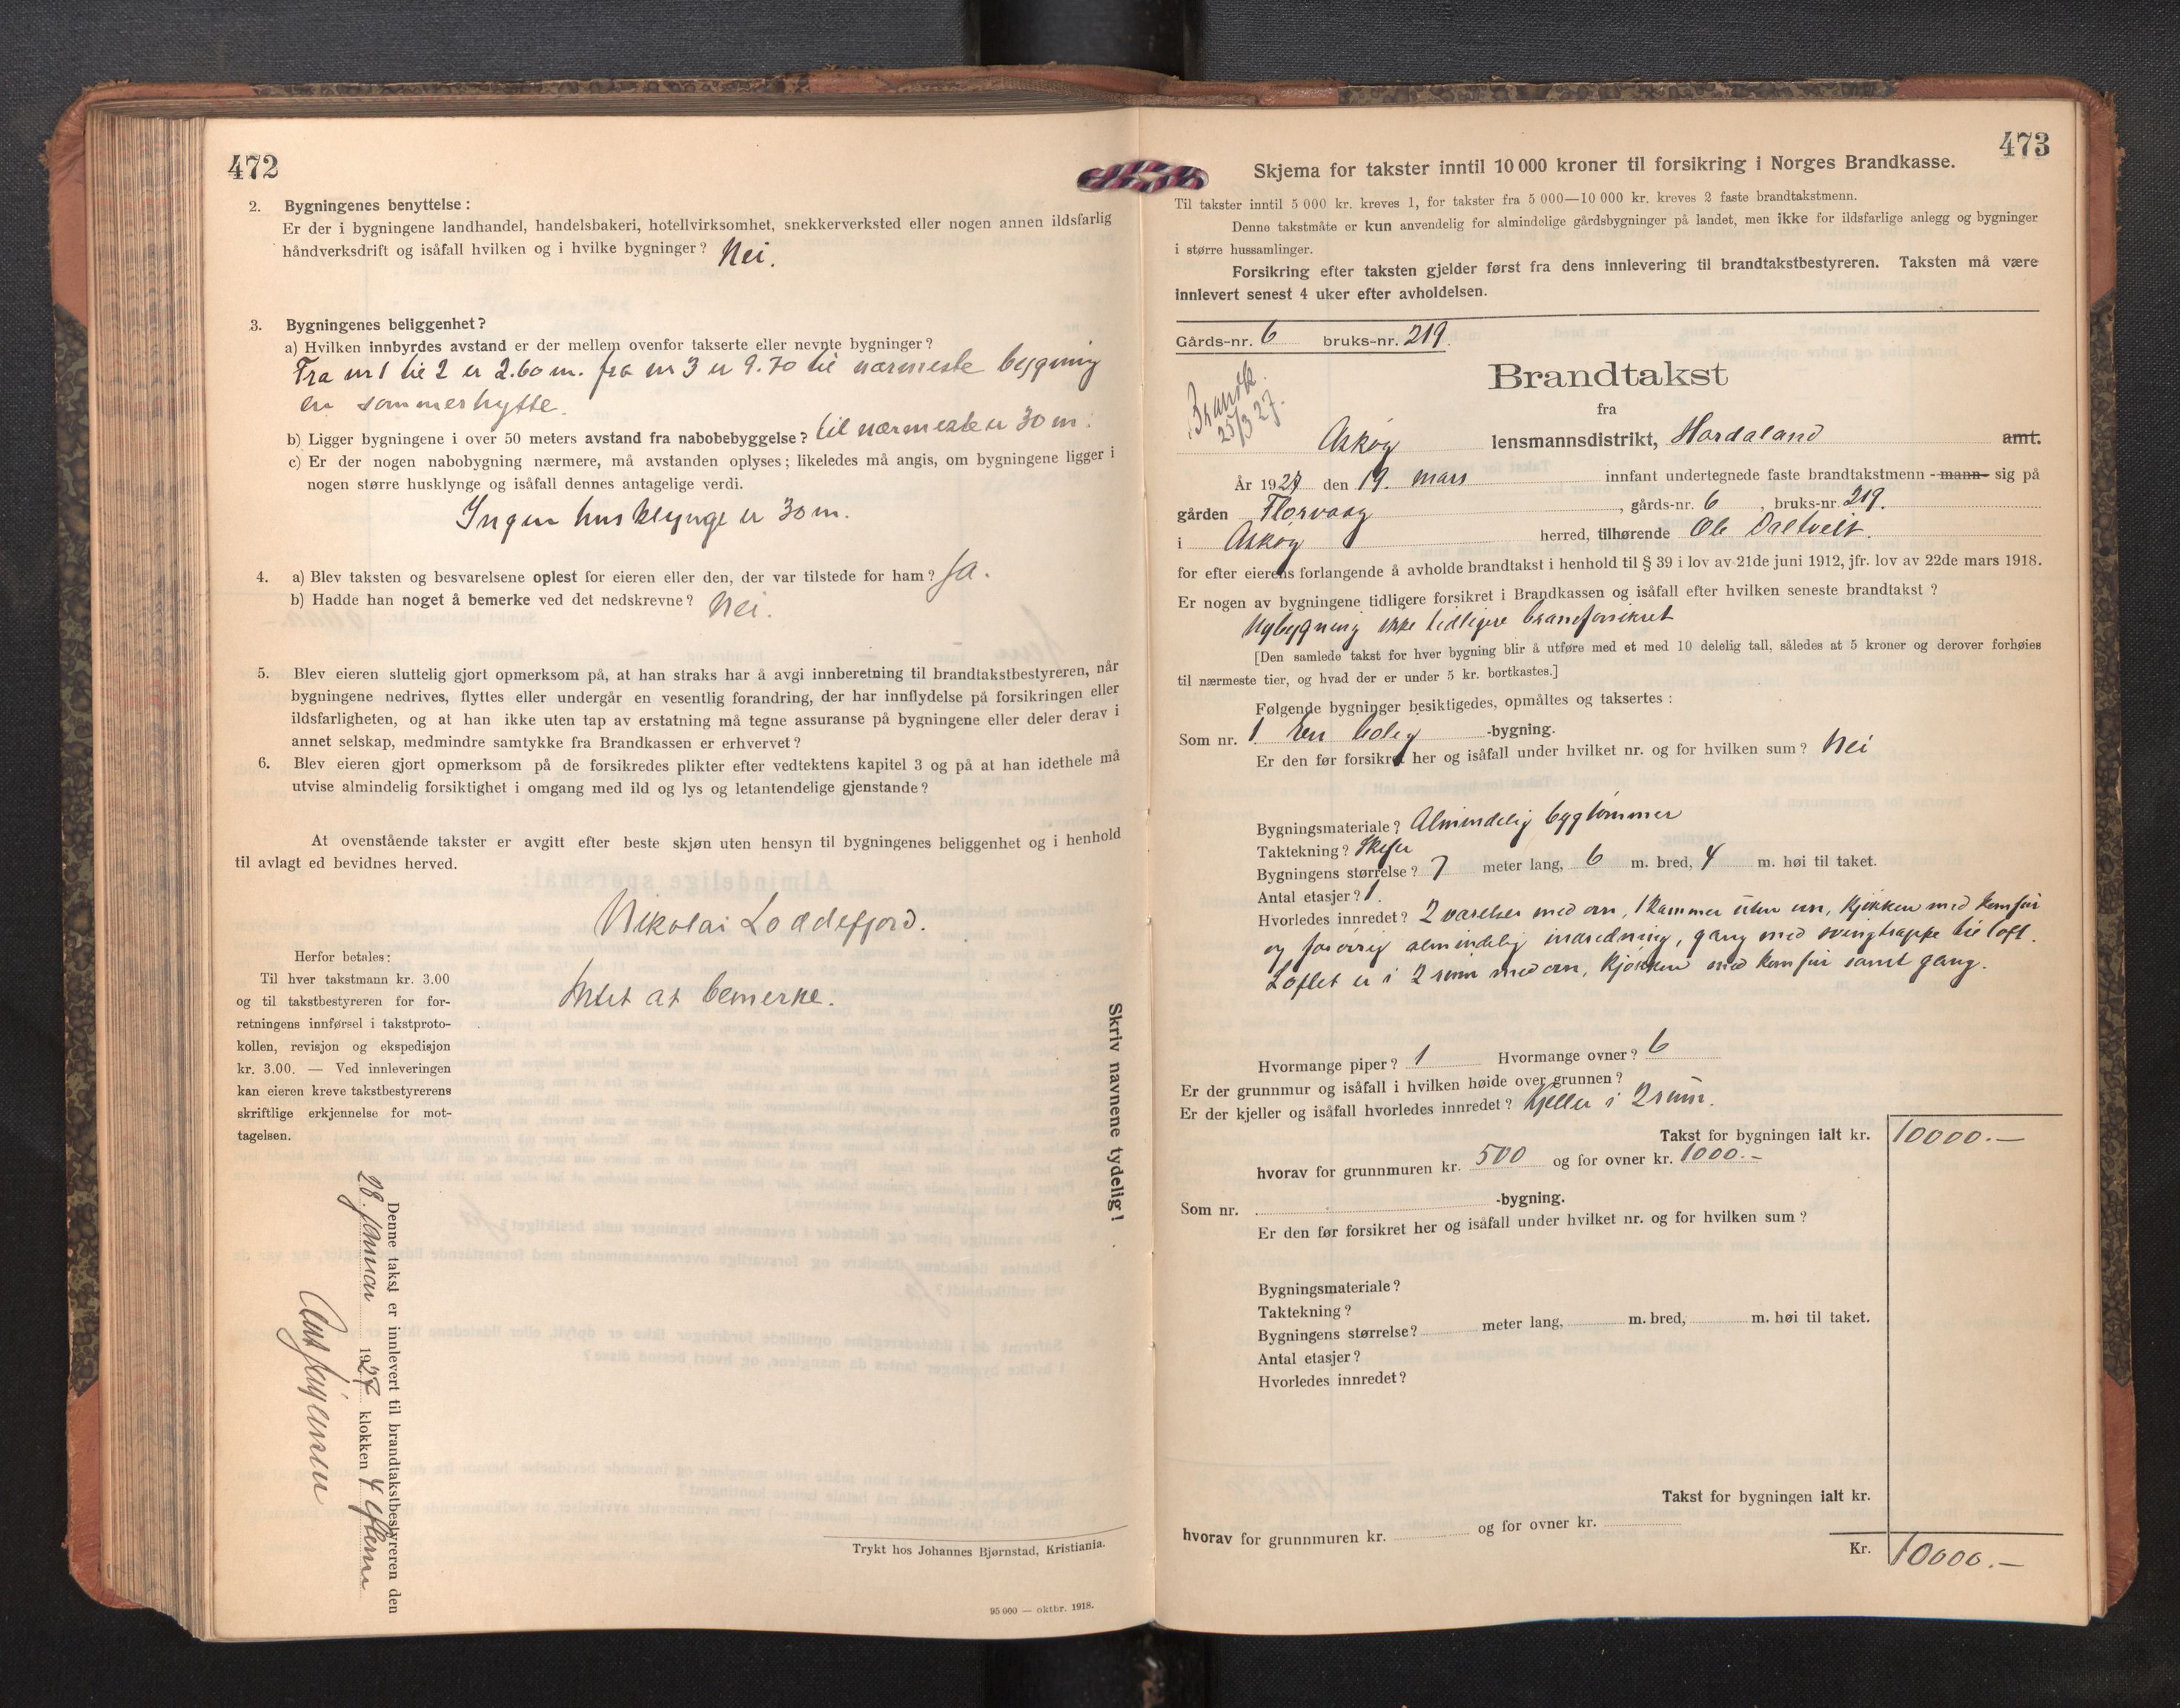 472
2. Bygningenes benyttelse :
Er der i bygningene landhandel, handelsbakeri, hotellvirksomhet, snekkerverksted eller nogen annen ildsfarlig
håndverksdrift og isåfall hvilken og i hvilke bygninger ? Nei.
3. Bygningenes beliggenhet ?
a) Hvilken innbyrdes avstand er der mellem ovenfor takserte eller nevnte bygninger ?
Fra nr 1 til 2 er 2.60 m. fra nr 3 er 9.70 til nærmeste bygning
en sommerhytte.
b) Ligger bygningene i over 50 meters avstand fra nabobebyggelse ? til nærmeste er 30 m.
c) Er der nogen nabobygning nærmere, må avstanden oplyses ; likeledes må angis, om bygningene ligger i
nogen større husklynge og isåfall dennes antagelige verdi.
Ingen husklynge er 30 m.
4. a) Blev taksten og besvarelsene oplest for eieren eller den, der var tilstede for ham ? Ja.
b) Hadde han noget å bemerke ved det nedskrevne ? Nei.
5. Blev eieren sluttelig gjort opmerksom på, at han straks har å avgi innberetning til brandtakstbestyreren, når
bygningene nedrives, flyttes eller undergår en vesentlig forandring, der har innflydelse på forsikringen eller
ildsfarligheten, og at han ikke uten tap av erstatning må tegne assuranse på bygningene eller deler derav i
annet selskap, medmindre samtykke fra Brandkassen er erhvervet ?
6. Blev eieren gjort opmerksom på de forsikredes plikter efter vedtektens kapitel 3 og på at han idethele må
utvise almindelig forsiktighet i omgang med ild og lys og letantendelige gjenstande ?
At ovenstående takster er avgitt efter beste skjøn uten hensyn til bygningenes beliggenhet og i henhold
til avlagt ed bevidnes herved.
Nikolai Loddefjord.
Intet at bemerke.
Herfor betales :
Til hver takstmann kr. 3.00
og til takstbestyreren for for-
retningens innførsel i takstproto-
kollen, revisjon og ekspedisjon
kr. 3.00. — Ved innleveringen
kan eieren kreve takstbestyrerens
skriftlige erkjennelse for mot-
tagelsen.
Skriv navnene tydelig !
Denne takst er innlevert til brandtakstbestyreren den
28. januar 1927 klokken 4 efterm
Trykt hos Johannes Bjørnstad, Kristiania.
95 000 — oktbr. 1918.
473
Skjema for takster inntil 10 000 kroner til forsikring i Norges Brandkasse.
Til takster inntil 5 000 kr. kreves 1, for takster fra 5 000—10 000 kr. kreves 2 faste brandtakstmenn.
Denne takstmåte er kun anvendelig for almindelige gårdsbygninger på landet, men ikke for ildsfarlige anlegg og bygninger
i større hussamlinger.
Forsikring efter taksten gjelder først fra dens innlevering til brandtakstbestyreren. Taksten må være
innlevert senest 4 uker efter avholdelsen.
Gårds-nr. 6 bruks-nr. 219.
Brandtakst
Brandk.
25/3 27.
fra
Askøy lensmannsdistrikt, Hordaland amt.
År 1927 den 19. mars innfant undertegnede faste brandtakstmenn - mann - sig på
gården Florvaag , gårds-nr. 6 , bruks-nr 219.
i Askøy herred, tilhørende Ole Daltveit.
for efter eierens forlangende å avholde brandtakst i henhold til § 39 i lov av 21de juni 1912, jfr. lov av 22de mars 1918.
Er nogen av bygningene tidligere forsikret i Brandkassen og isåfall efter hvilken seneste brandtakst ?
Nybygning ikke tidligere brandforsikret
[Den samlede takst for hver bygning blir å utføre med et med 10 delelig tall, således at 5 kroner og derover forhøies
til nærmeste tier, og hvad der er under 5 kr. bortkastes.]
Følgende bygninger besiktigedes, opmåltes og taksertes :
Som nr. 1. En bolig -bygning.
Er den før forsikret her og isåfall under hvilket nr. og for hvilken sum ? Nei
Bygningsmateriale ? Almindelig bygtømmer
Taktekning ? Skifer
Bygningens størrelse ? 7 meter lang, 6 m. bred, 4 m. høi til taket.
Antal etasjer ? 1.
Hvorledes innredet ? 2 værelser med ovn, 1 kammer uten ovn, kjøkken med komfur
og forøvrig almindelig indredning, gang med svingtrappe til loft.
Loftet er i 2 rum med ovn, kjøkken med komfur samt gang.
Hvormange piper ? 1 Hvormange ovner ? 6
Er der grunnmur og isåfall i hvilken høide over grunnen ?
Er der kjeller og isåfall hvorledes innredet ? Kjeller i 2 rum.
Takst for bygningen ialt kr. 10000.—
hvorav for grunnmuren kr. 500 og for ovner kr. 1000.—
Som nr. -bygning.
Er den før forsikret her og isåfall under hvilket nr. og for hvilken sum ?
Bygningsmateriale ?
Taktekning ?
Bygningens størrelse ? meter lang, m. bred, m. høi til taket.
Antal etasjer ?
Hvorledes innredet ?
Takst for bygningen ialt kr.
hvorav for grunnmuren kr. og for ovner kr.
Kr. 10000.—